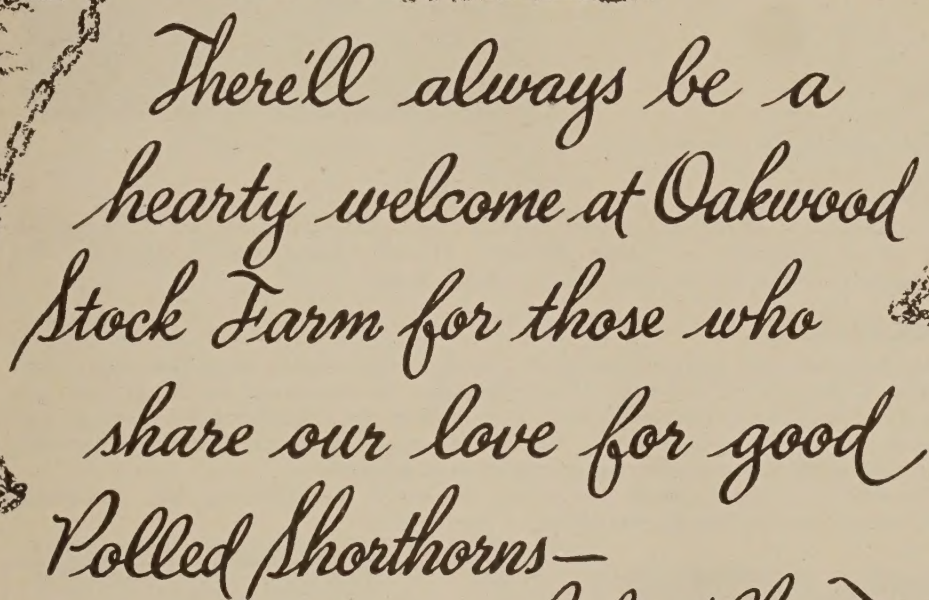 There'll always be a
hearty welcome at Oakwood
Stock Farm for those who
share our love for good
Polled Shorthorns—